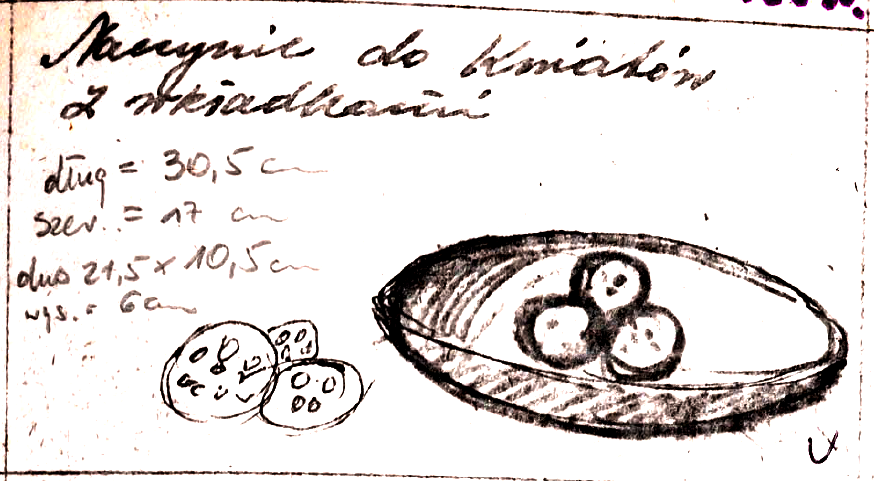 Naczynie do kwiatów
z wkładkami
dług = 30,5 cm
szer. = 17 cm
dno 21,5 x 10,5 cm
wys. = 6 cm